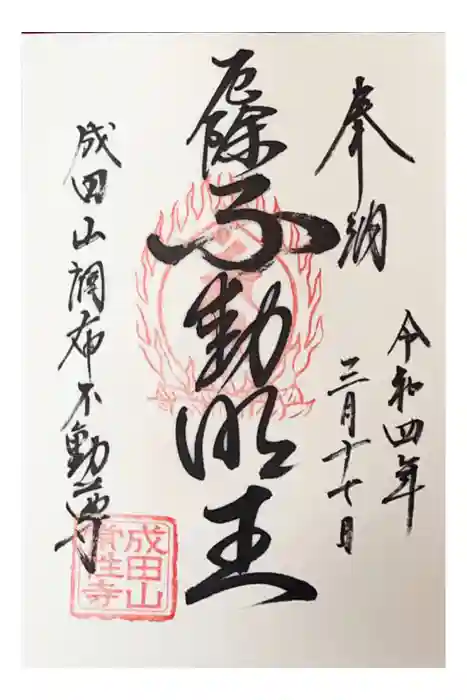 奉納
令和四年
三月十七日
厄除不動明王
成田山調布不動尊
成田山
常性寺